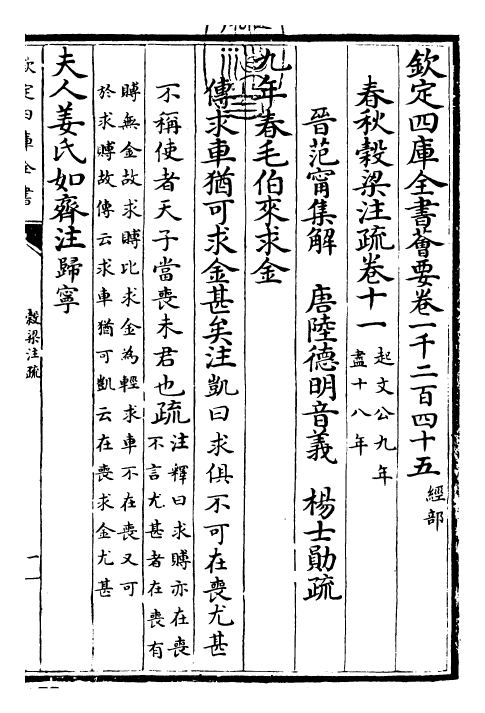 欽定四庫全書薈要卷一千二百四十五 經部
春秋穀梁注疏卷十一 起文公九年
盡十八年
晉范甯集解 唐陸德明音義 楊士勛疏
九年春毛伯來求金
傳求車猶可求金甚矣注凱曰求俱不可在喪尤甚
不稱使者天子當喪未君也疏注釋曰求賻亦在喪
不言尤甚者在喪有
賻無金故求賻比求金為輕求車不在喪又可
於求賻故傳云求車猶可凱云在喪求金尤甚
夫人姜氏如齊注歸寧
欽定四庫全書
穀梁注疏
一